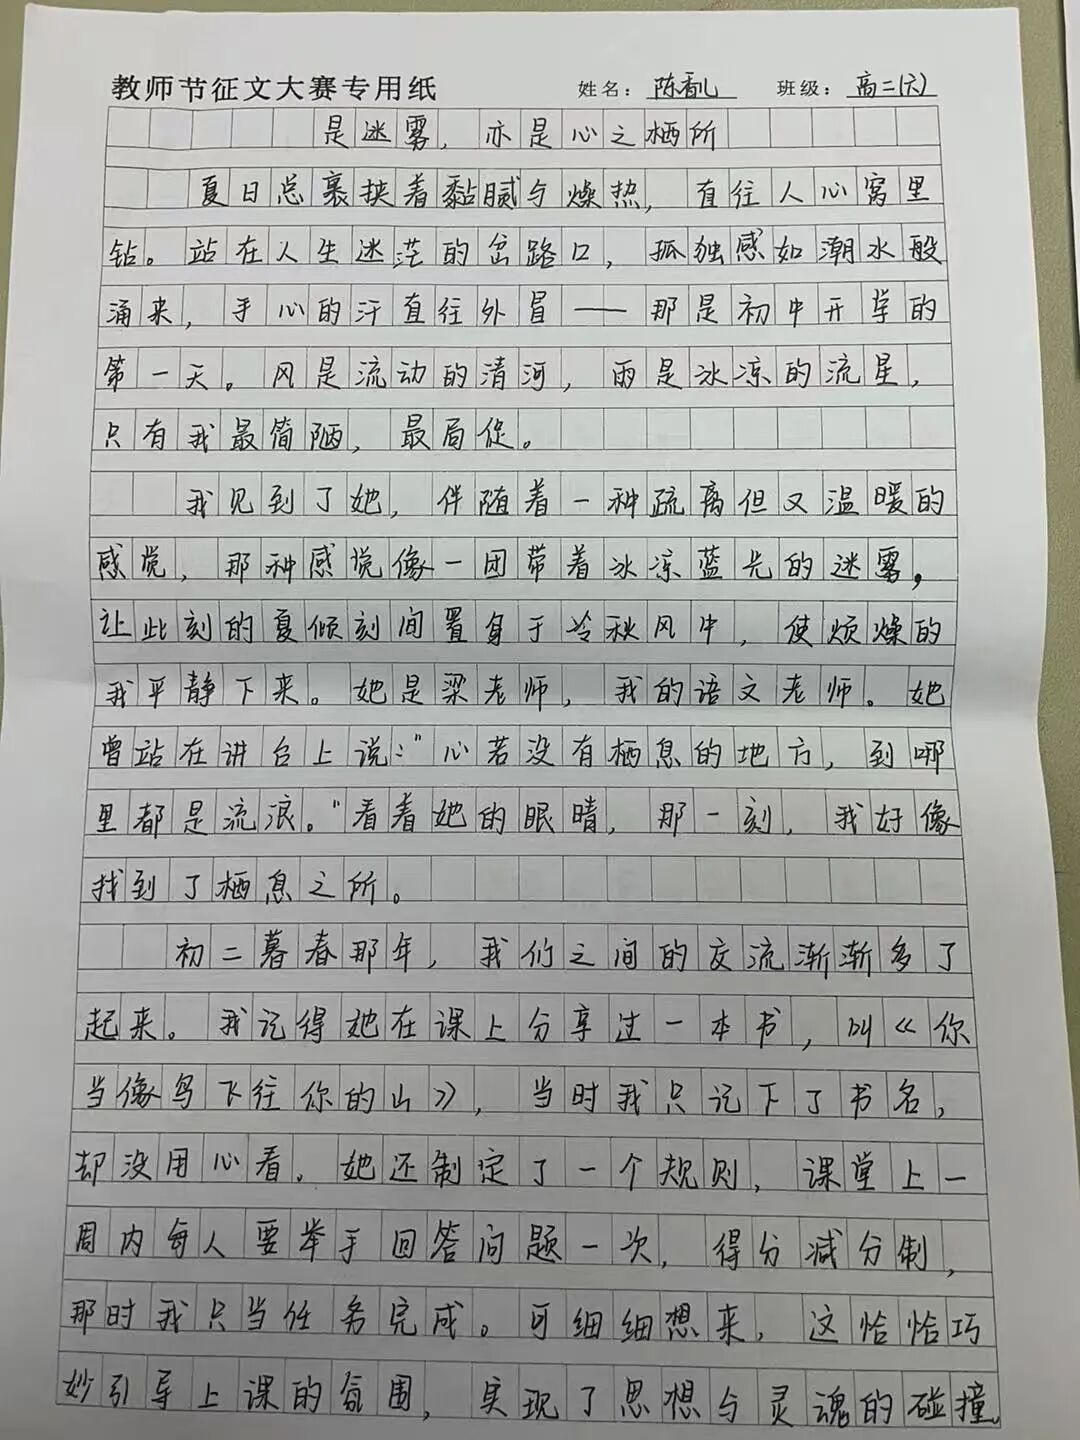 教师节征文大赛专用纸 姓名：陈香儿 班级：高二（六）
是迷雾，亦是心之栖所
夏日总裹挟着黏腻与燥热，直往人心窝里
钻。站在人生迷茫的岔路口，孤独感如潮水般
涌来，手心的汗直往外冒——那是初中开学的
第一天。风是流动的清河，雨是冰凉的流星，
只有我最简陋，最局促。
我见到了她，伴随着一种疏离但又温暖的
感觉，那种感觉像一团带着冰凉蓝光的迷雾，
让此刻的夏倾刻间置身于冷秋风中，使烦燥的
我平静下来。她是梁老师，我的语文老师。她
曾站在讲台上说：“心若没有栖息的地方，到哪
里都是流浪。”看着她的眼睛，那一刻，我好像
找到了栖息之所。
初二暮春那年，我们之间的交流渐渐多了
起来。我记得她在课上分享过一本书，叫《你
当像鸟飞往你的山》，当时我只记下了书名，
却没用心看。她还制定了一个规则，课堂上一
周内每人要举手回答问题一次，得分减分制，
那时我只当任务完成。可细细想来，这恰恰巧
妙引导上课的氛围，实现了思想与灵魂的碰撞。